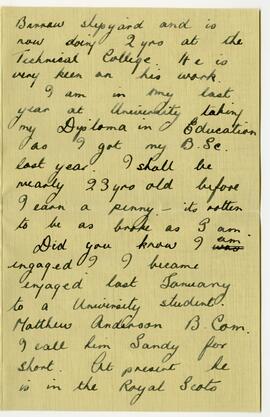 Barrow shipyard and is
now doing 2 yrs at the
Technical College. He is
very keen on his work.
I am in my last
year at University taking
my Diploma in Education
as I got my B.Sc.
last year. I shall be
nearly 23 yrs old before
I earn a penny - it's rotten
to be as broke as I am.
Did you know I am
was
engaged? I became
engaged last January
to a University student.
Matthew Anderson B. Com.
I call him Sandy for
short. At present he
is in the Royal Scots